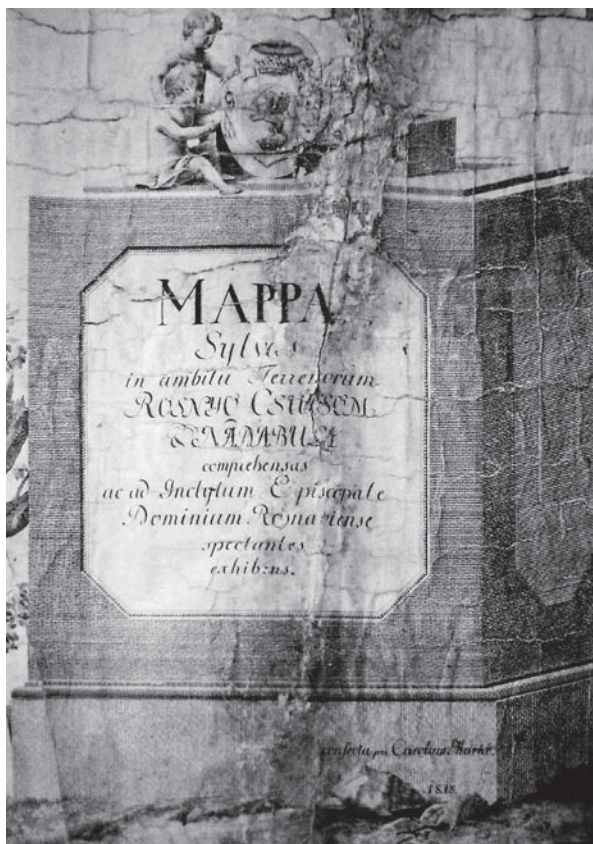 MAPPA
Sylvas
in ambitu Terrenorum
ROSNYO
NADABULA
comprehensas
ac ad Inclytum Episcopale
Dominium Rosnaviense
spectantes
exhibens.
confecta per Carolum
1818